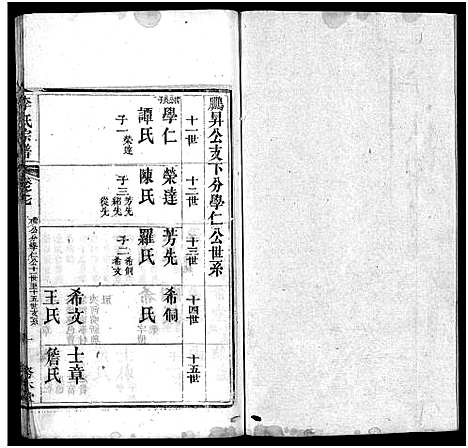 鵬昇公支下分學仁公世系
十一世
學仁
譚氏
子一榮達
十二世
榮達
陳氏
子三芳先
緒先
從先
十三世
芳先
羅氏
子二希侗
希文
十四世
希侗
氏
希文
王氏
十五世
士章
詹氏
李氏宗譜
卷七
公分學仁公十一世至十五世支系